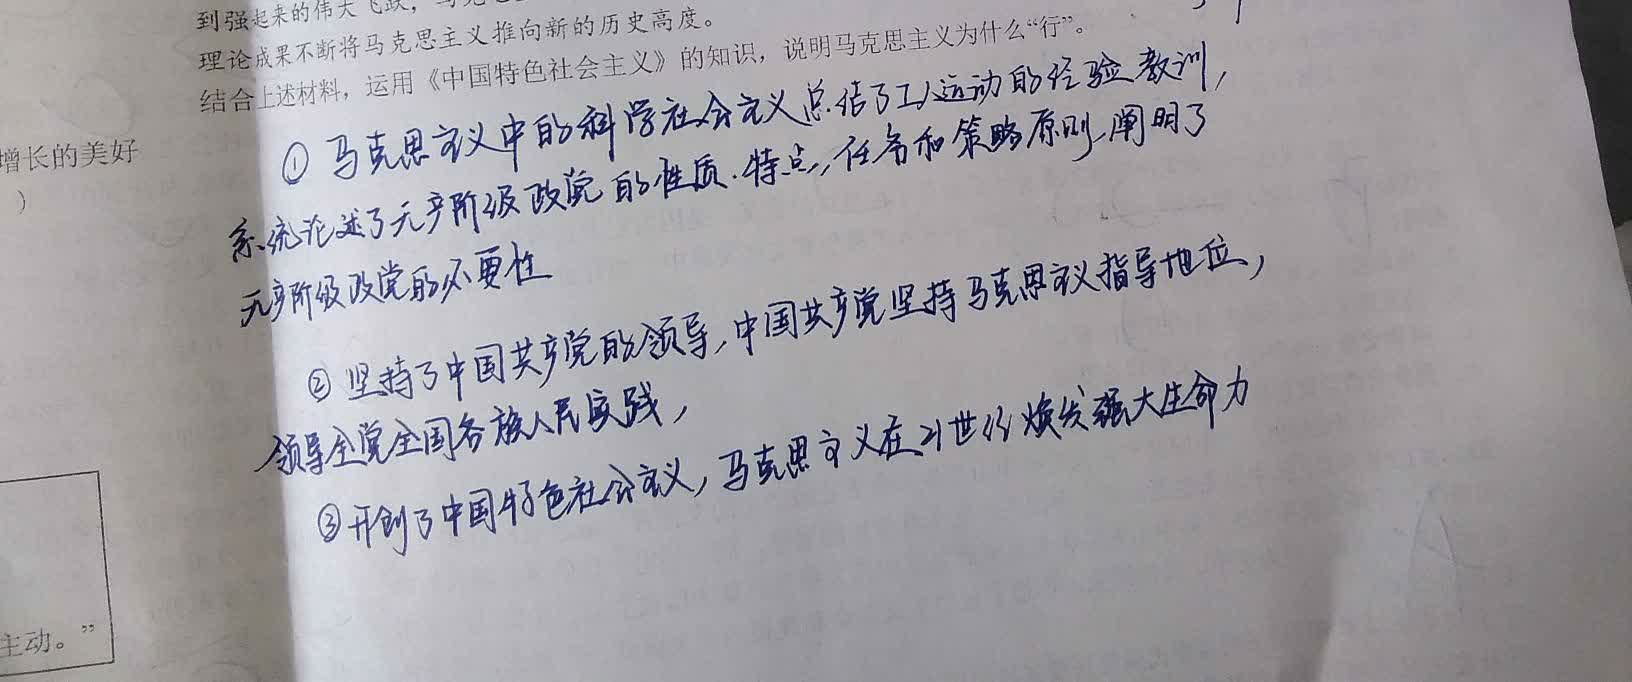 到强起来的伟大飞跃，
理论成果不断将马克思主义推向新的历史高度。
结合上述材料，运用《中国特色社会主义》的知识，说明马克思主义为什么“行”。
增长的美好
）
①马克思主义中的科学社会主义总结了工人运动的经验教训，
系统论述了无产阶级政党的性质、特点，任务和策略原则，阐明了
无产阶级政党的必要性
②坚持了中国共产党的领导，中国共产党坚持马克思主义指导地位，
领导全党全国各族人民实践，
③开创了中国特色社会主义，马克思主义在21世纪焕发强大生命力
主动。”